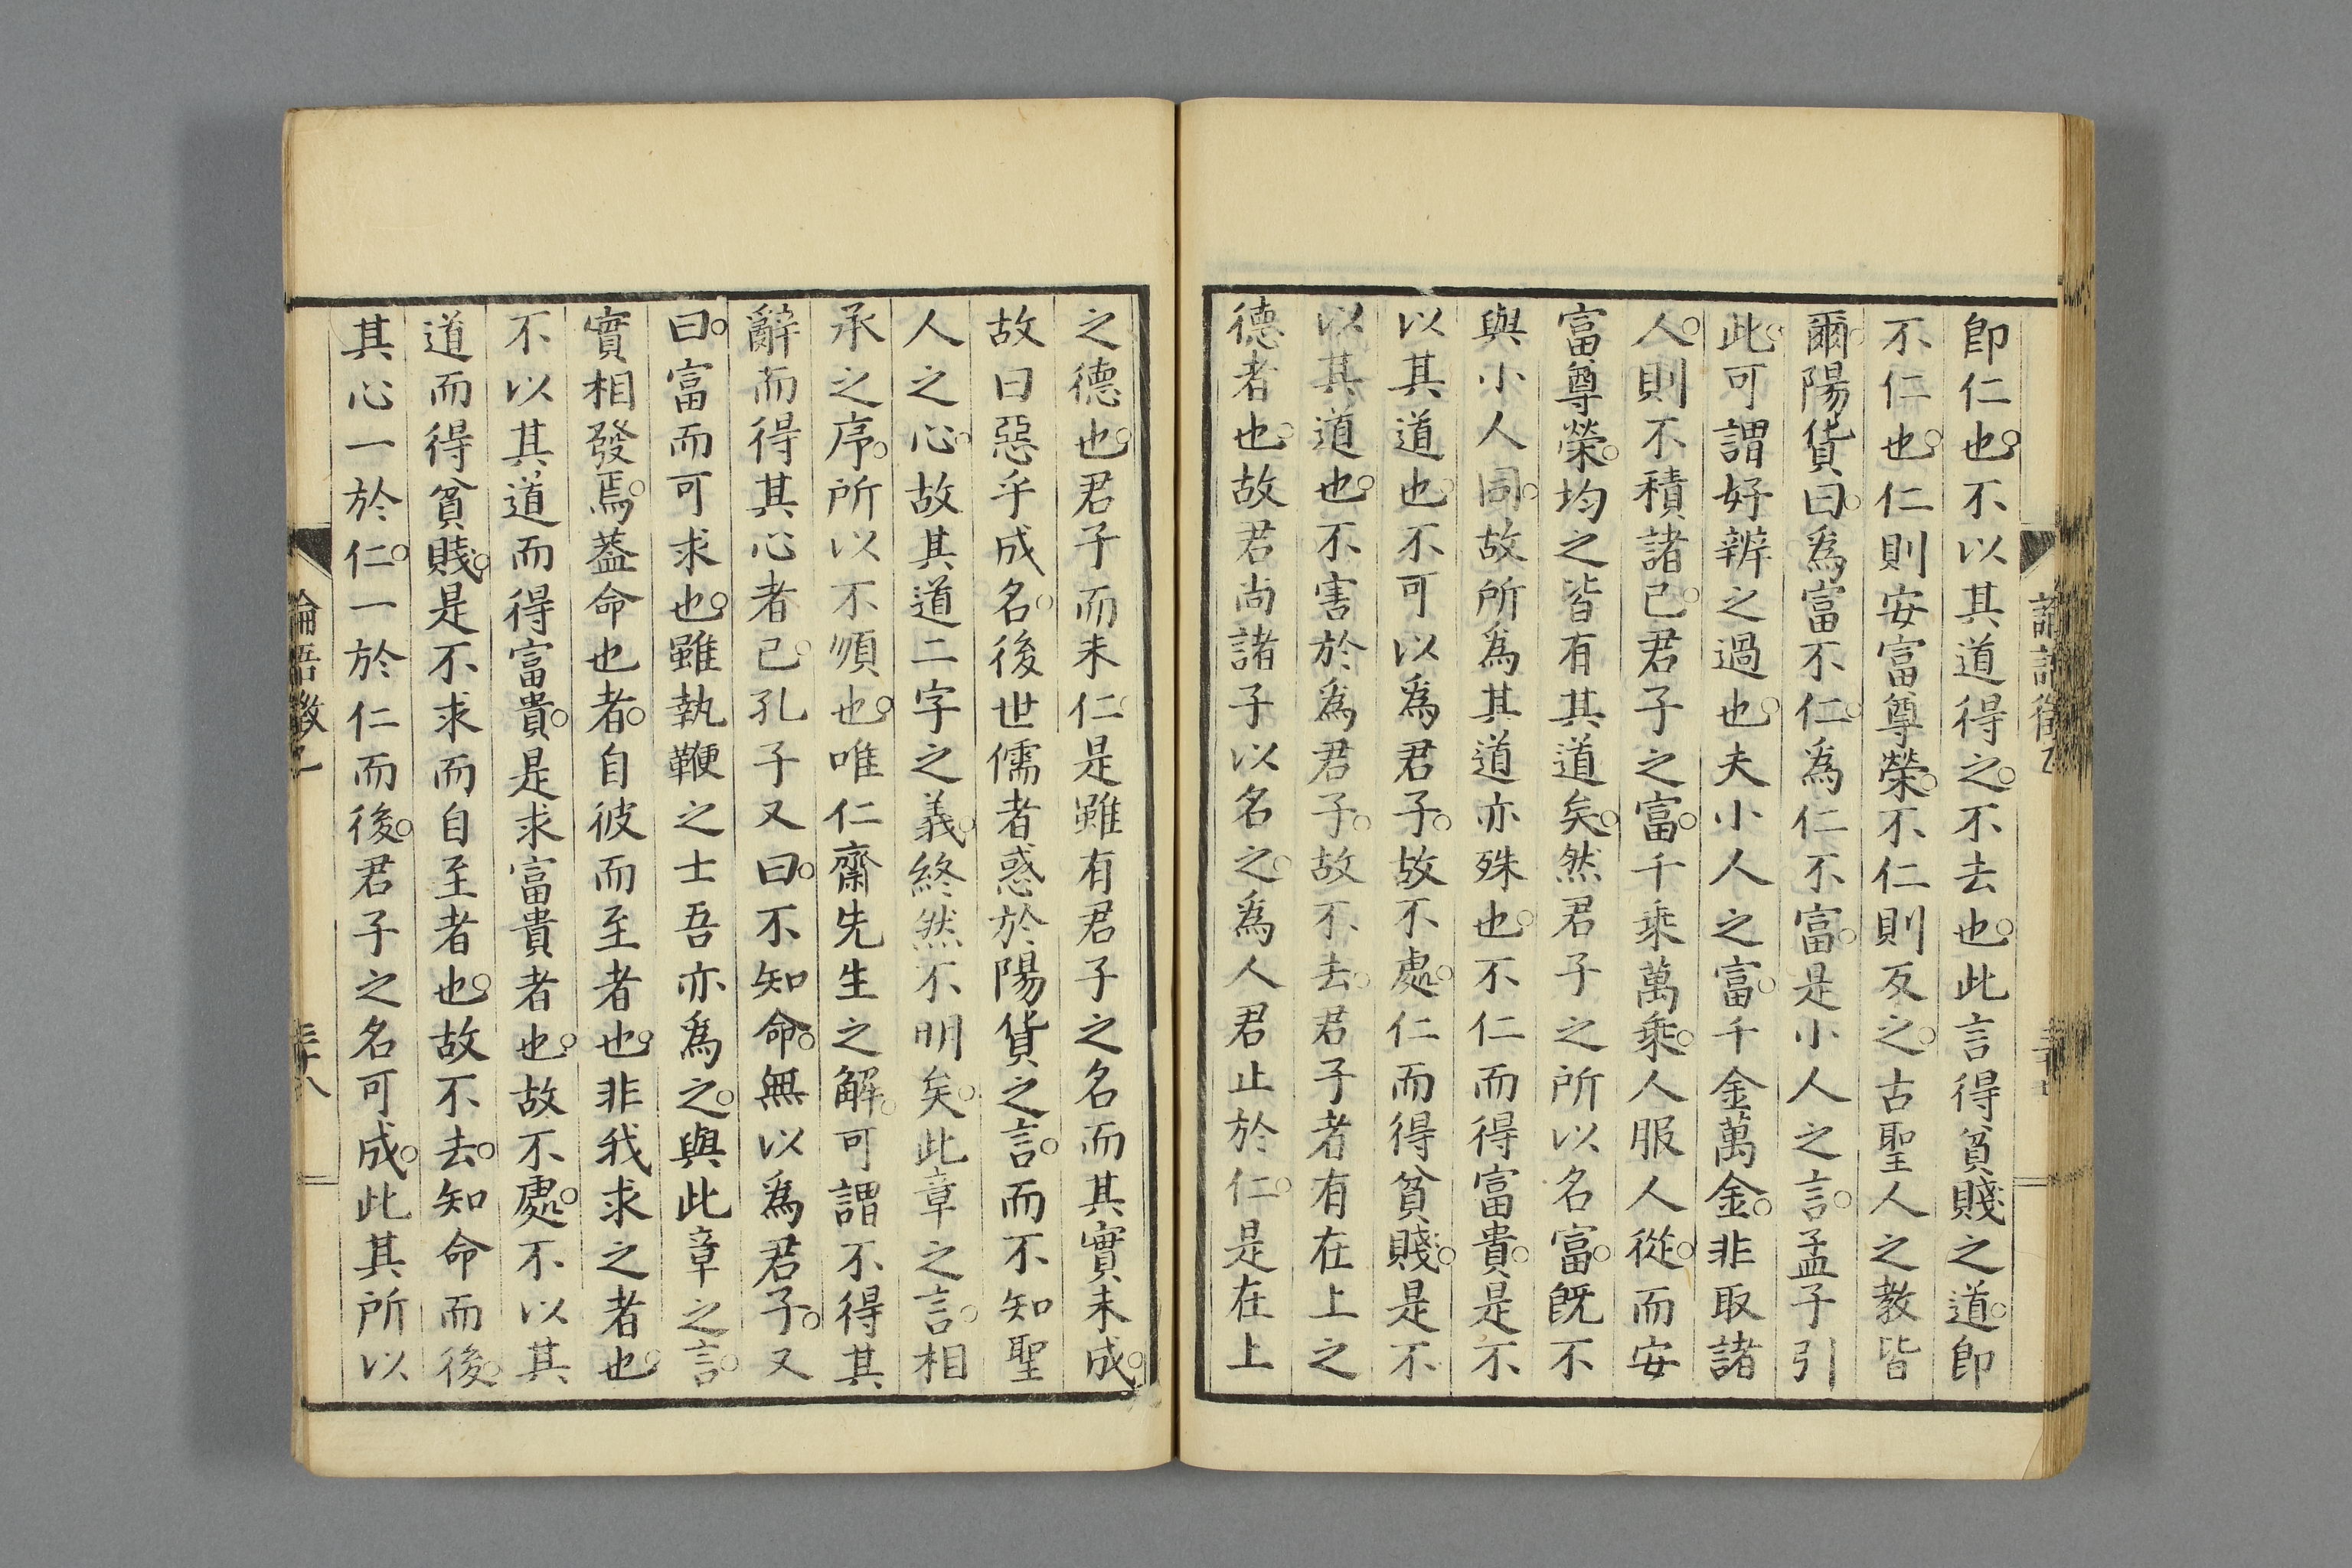 卽仁也。不以其道得之。不去也。此言得貧賤之道。卽
不仁也。仁則安富尊榮。不仁則反之。古聖人之教皆
爾。陽貨曰。爲富不仁。爲仁不富。是小人之言。孟子引
此。可謂好辨之過也。夫小人之富。千金萬金。非取諸
人。則不積諸己。君子之富。千乘萬乘。人服人從。而安
富尊榮。均之皆有其道矣。然君子之所以名富。旣不
與小人同。故所爲其道亦殊也。不仁而得富貴。是不
以其道也。不可以爲君子。故不處。仁而得貧賤。是不
以其道也。不害於爲君子。故不去。君子者有在上之
德者也。故君尚諸子以名之。爲人君止於仁。是在上
之德也。君子而未仁。是雖有君子之名而其實未成。
故曰惡乎成名。後世儒者惑於陽貨之言。而不知聖
人之心。故其道二字之義。終然不明矣。此章之言。相
承之序。所以不順也。唯仁齋先生之解。可謂不得其
辭而得其心者已。孔子又曰。不知命。無以爲君子。又
曰。富而可求也。雖執鞭之士吾亦爲之。與此章之言。
實相發焉。蓋命也者。自彼而至者也。非我求之者也。
不以其道而得富貴。是求富貴者也。故不處。不以其
道而得貧賤。是不求而自至者也。故不去。知命而後。
其心一於仁。一於仁而後。君子之名可成。此其所以